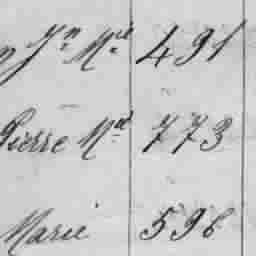 Jn Mie 491
Pierre Md 773
Marie 596